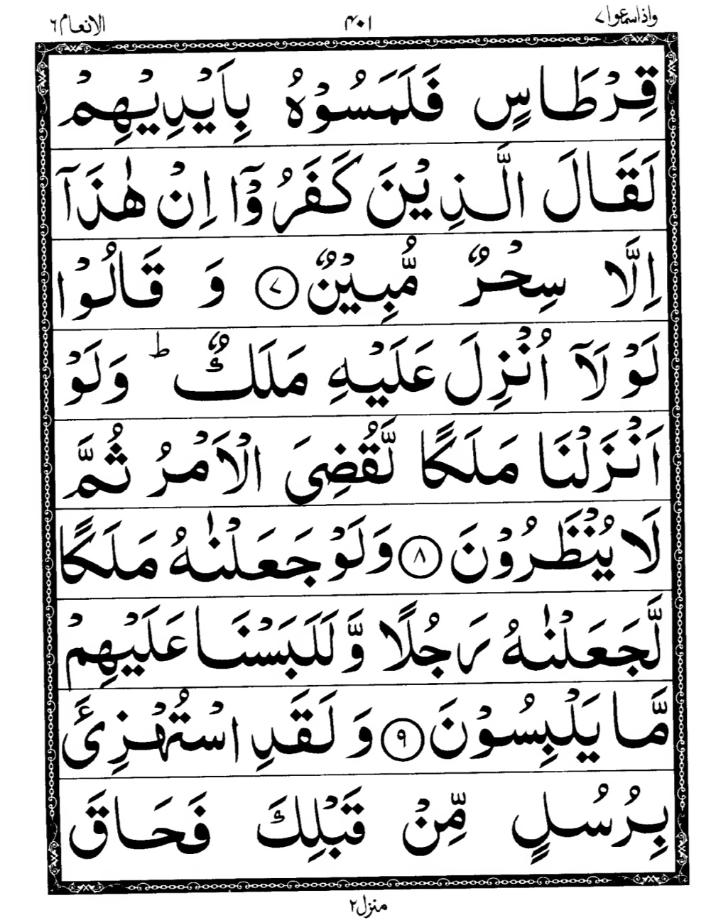 واذاسمعوا ٧ ۴۰۱ الانعام ٦
قِرْطَاسٍ فَلَمَسُوْهُ بِاَيْدِيْهِمْ
لَقَالَ الَّذِيْنَ كَفَرُوْٓا اِنْ هٰذَآ
اِلَّا سِحْرٌ مُّبِيْنٌ ٧ وَ قَالُوْا
لَوْ لَآ اُنْزِلَ عَلَيْهِ مَلَكٌ ؕ وَلَوْ
اَنْزَلْنَا مَلَكًا لَّقُضِيَ الْاَمْرُ ثُمَّ
لَا يُنْظَرُوْنَ ٨ وَلَوْ جَعَلْنٰهُ مَلَكًا
لَّجَعَلْنٰهُ رَجُلًا وَّ لَلَبَسْنَا عَلَيْهِمْ
مَّا يَلْبِسُوْنَ ٩ وَ لَقَدِ اسْتُهْزِئَ
بِرُسُلٍ مِّنْ قَبْلِكَ فَحَاقَ
منزل ٢